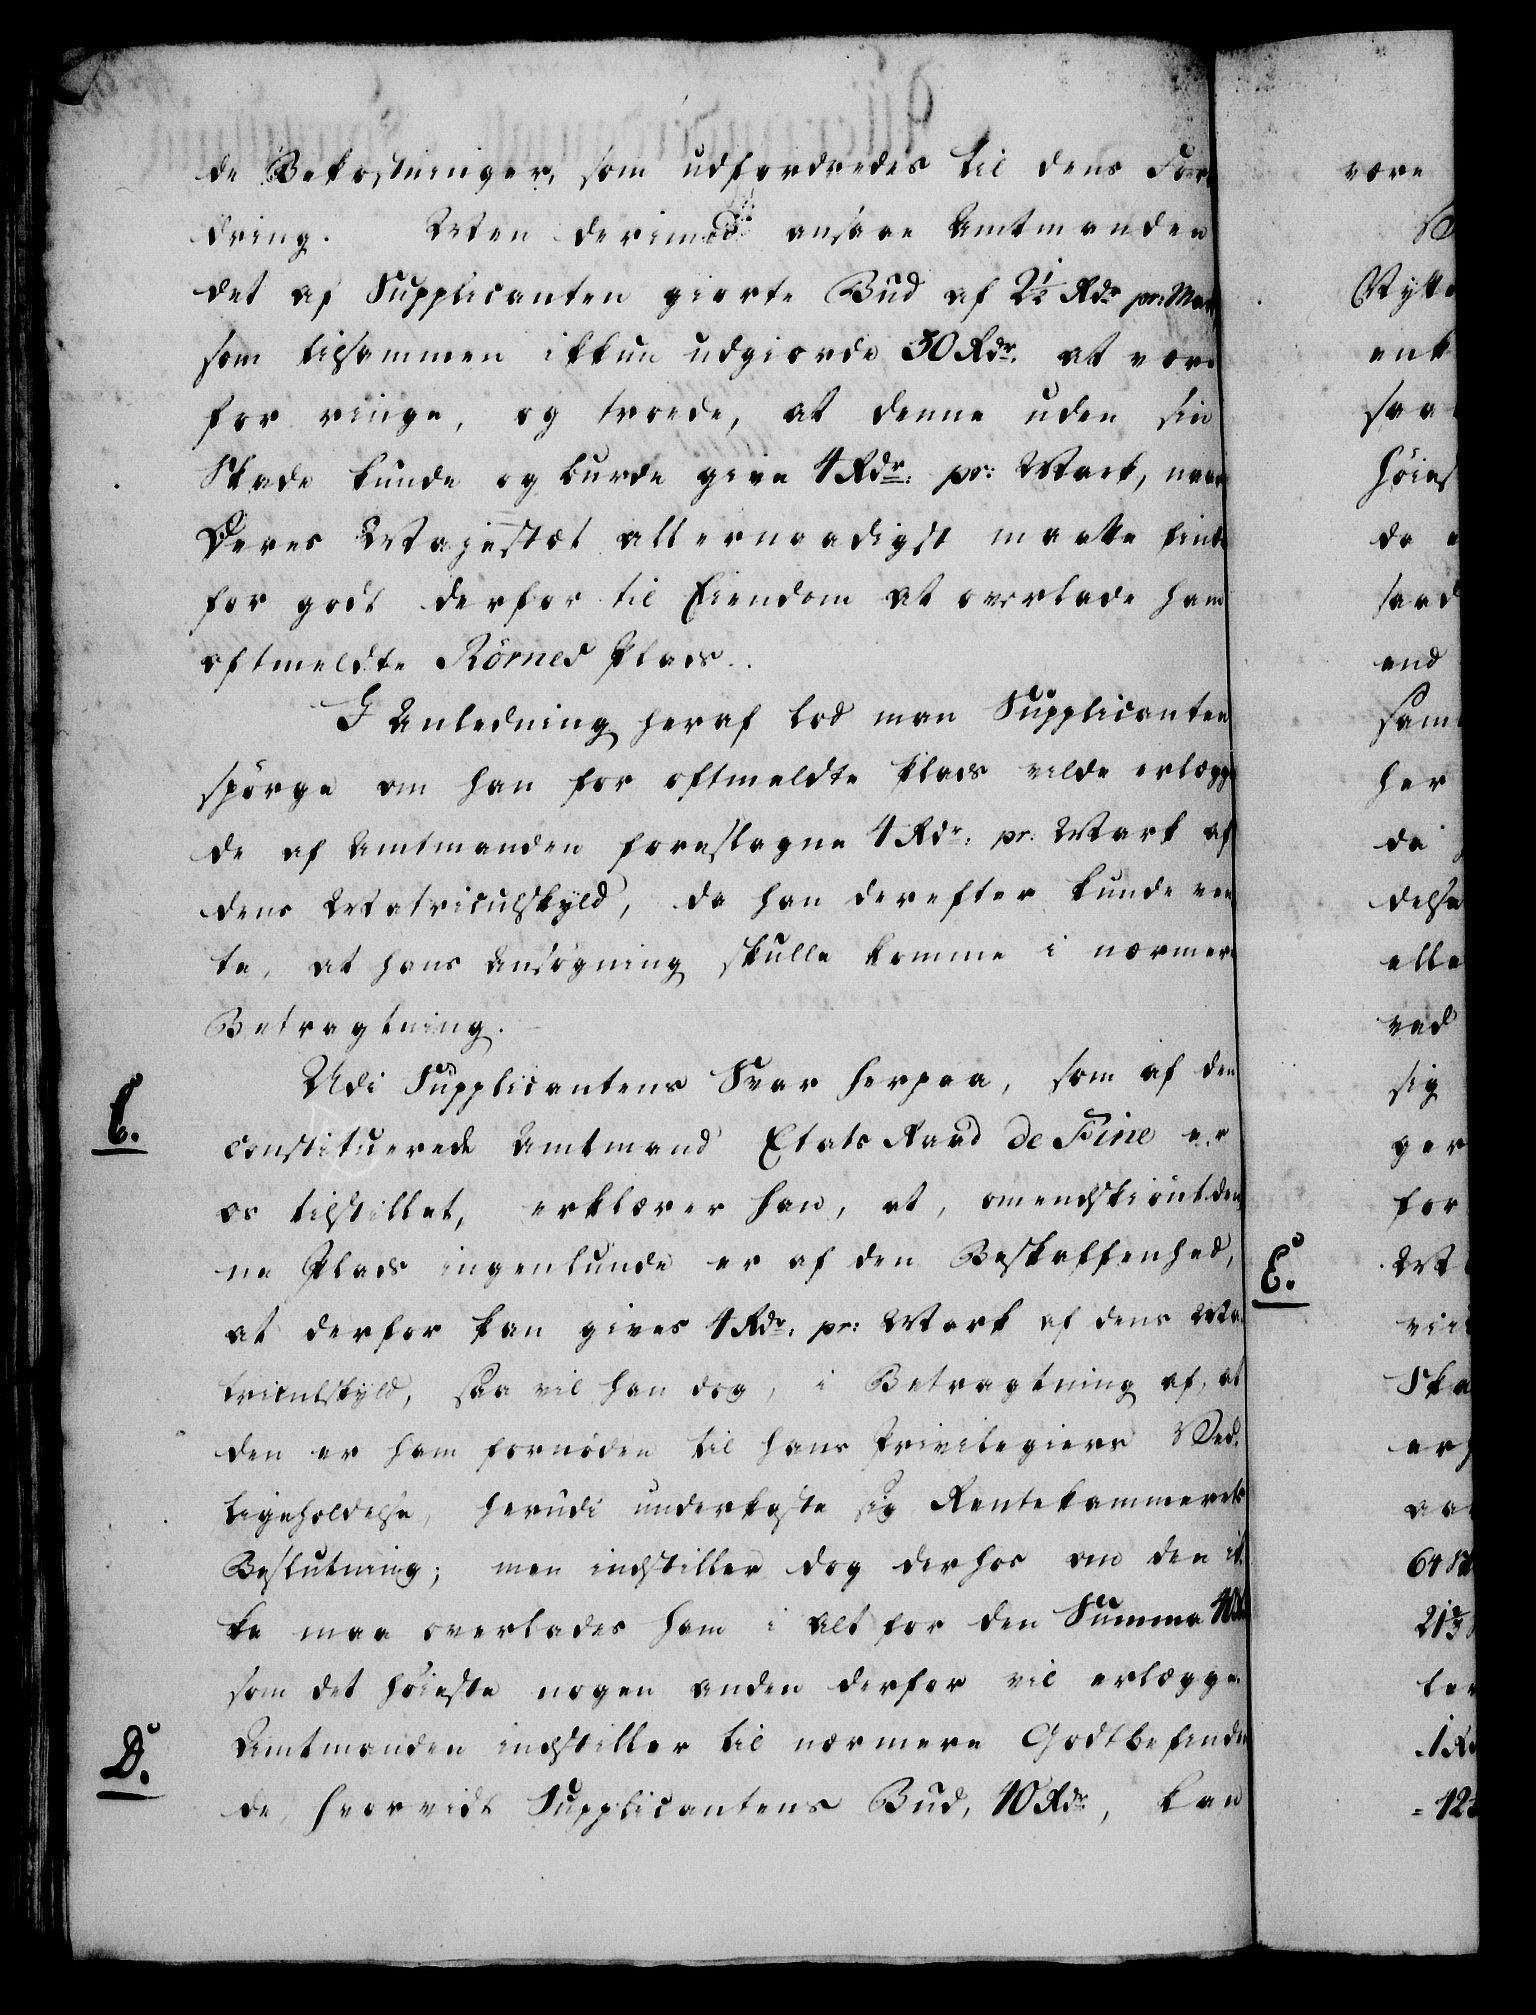 de Bekostninger, som udfordredes til dens For
dring. Men derimod ansaae Amtmanden
det af Supplicanten giorte Bud af 2½ Rdr pr: Mark
som tilsammen ikkun udgiorde 30 Rdr. at være
for ringe, og troede, at denne uden sin
Skade kunde og burde give 4 Rdr. pr: Mark, naar
Deres Majestæt allernaadigst maatte finde
for godt derfor til Eiendom at overlade ham
oftmeldte Rörnes Plads.
I Anledning heraf lod man Supplicanten
spörge om han for oftmeldte Plads vilde erlægge
de af Amtmanden foreslagne 4 Rdr. pr. Mark af
dens Matriculskyld, da han derefter kunde ven
te, at hans Ansögning skulle komme i nærmere
Betragtning.
C.
Udi Supplicantens Svar herpaa, som af den
constituerede Amtmand Etats Raad de Fine er
os tilstillet, erklærer han, at, omendskiönt den
ne Plads ingenlunde er af den Beskaffenhed,
at derfor kan gives 4 Rdr. pr: Mark af dens Ma
triculskyld, saa vil han dog, i Betragtning af, at
den er ham fornöden til hans Privilegiers Ved:
ligeholdelse, herudi underkaste sig Rentekammerets
Beslutning; men indstiller dog derhos om den ik
ke maa overlades ham i Alt for den Summa 40 Rdr
som det höieste nogen anden derfor vil erlægge.
D.
Amtmanden indstiller til nærmere Godtbefinden
de, hvorvidt Supplicantens Bud, 40 Rdr, kan
være
Rytte
enk
saa
höies
da
saad
end
sam
her
da
delse
elle
ved
sig
ger
for
E.
M
vii
Ska
er
aa
64 Sk
21⅓
ler
1 Rd
= 12